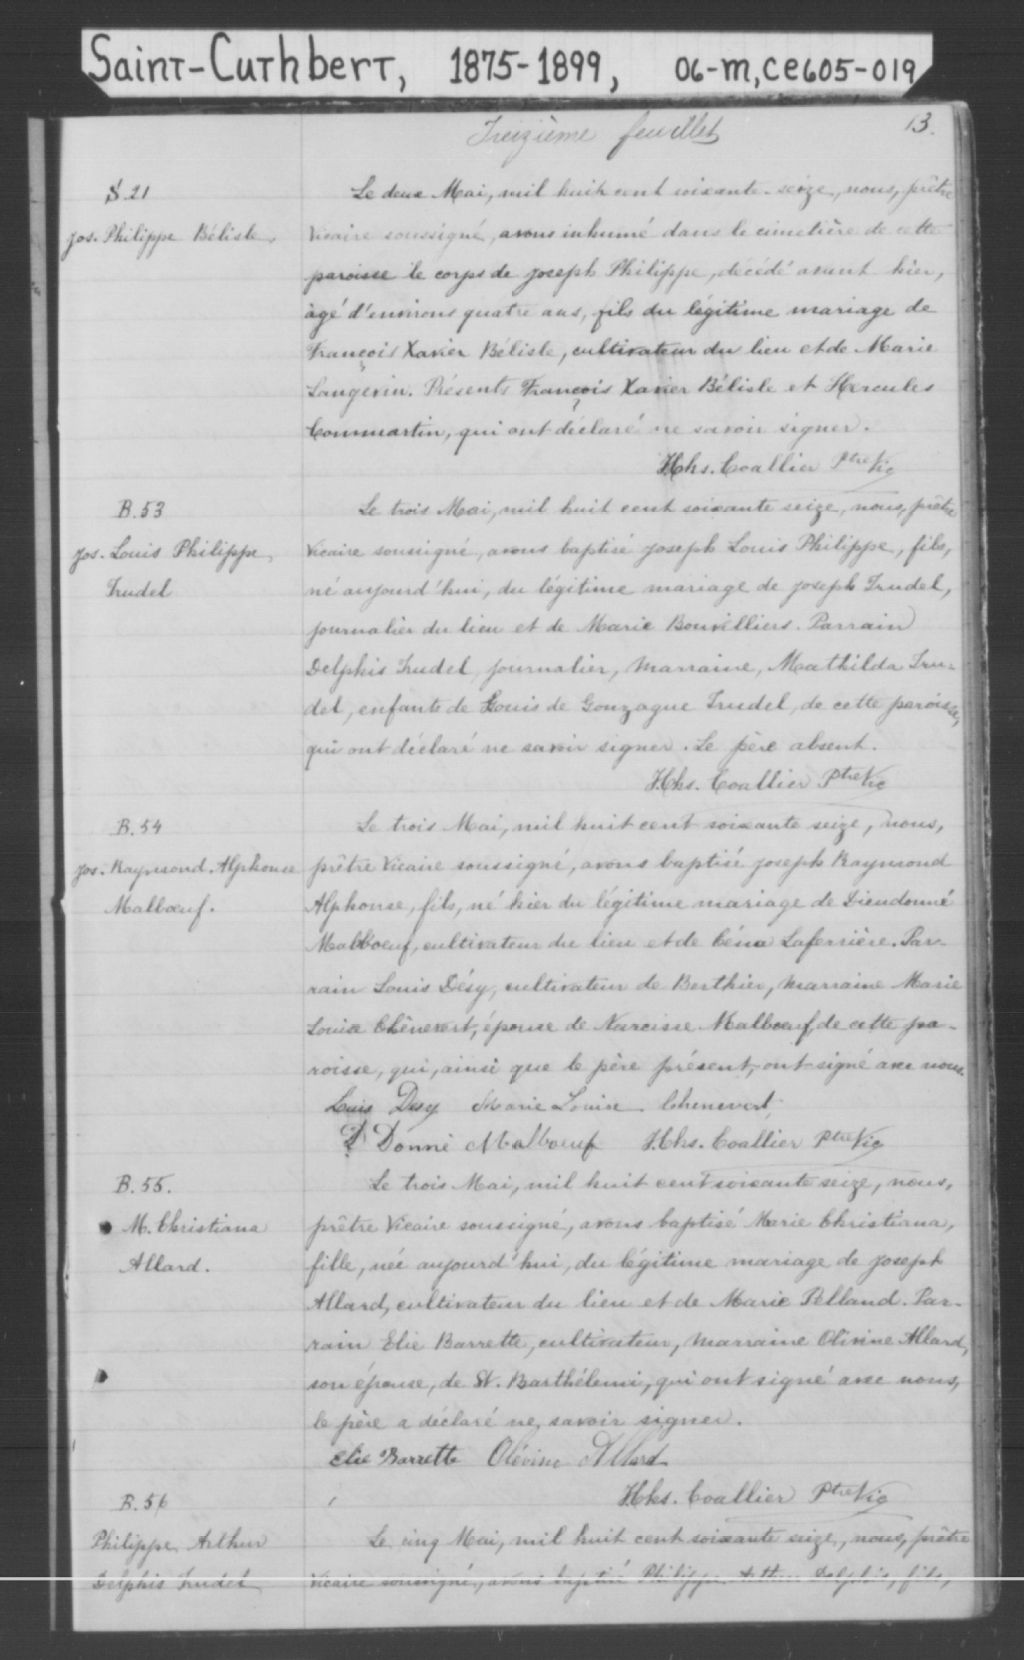 Saint-Cuthbert, 1875-1899, 06-m, ce605-019
Treizième feuillet
13.
S 21
Jos. Philippe Bélisle,
Le deux Mai, mil huit cent soixante-seize, nous, prêtre
Vicaire soussigné, avons inhumé dans le cimetière de cette
paroisse le corps de Joseph Philippe, décédé avant hier,
âgé d'environs quatre ans, fils du légitime mariage de
François Xavier Bélisle, cultivateur du lieu et de Marie
Langevin. Présents François Xavier Bélisle et Hercules
Commartin, qui ont déclaré ne savoir signer.
Hhs. Coallier Ptre Vic
B. 53
Jos. Louis Philippe
Trudel
Le trois Mai, mil huit cent soixante seize, nous, prêtre
Vicaire soussigné, avons baptisé Joseph Louis Philippe, fils,
né aujourd'hui, du légitime mariage de Joseph Trudel,
journalier du lieu et de Marie Bouvilliers. Parrain
Delphis Trudel, journalier, Marraine, Mathilda Tru-
del, enfants de Louis de Gonzague Trudel, de cette paroisse,
qui ont déclaré ne savoir signer. Le père absent.
Hhs. Coallier Ptre Vic
B. 54
Jos. Raymond. Alphonse
Malbœuf.
Le trois Mai, mil huit cent soixante seize, nous,
prêtre Vicaire soussigné, avons baptisé Joseph Raymond
Alphonse, fils, né hier du légitime mariage de Dieudonné
Malbœuf, cultivateur du lieu et de Céna Laferrière. Par-
rain Louis Désy, cultivateur de Berthier, Marraine Marie
Louise Chênevert, épouse de Narcisse Malbœuf, de cette pa-
roisse, qui, ainsi que le père présent, ont signé avec nous.
Luis Desy Marie Louise Chenevert
D Donné Malboeuf Hhs. Coallier Ptre Vic
B. 55.
M. Christiana
Allard.
Le trois Mai, mil huit cent soixante seize, nous,
prêtre Vicaire soussigné, avons baptisé Marie Christiana,
fille, née aujourd'hui, du légitime mariage de Joseph
Allard, cultivateur du lieu et de Marie Pelland. Par-
rain Elie Barrette, cultivateur, Marraine Olivine Allard,
son épouse, de St. Barthélemi, qui ont signé avec nous,
le père a déclaré ne savoir signer.
Elie Barrette Olévine Allard
Hhs. Coallier Ptre Vic
B. 56
Philippe Arthur
Delphis Trudel
Le cinq Mai, mil huit cent soixante seize, nous, prêtre
Vicaire soussigné, avons baptisé Philippe Arthur Delphis, fils,